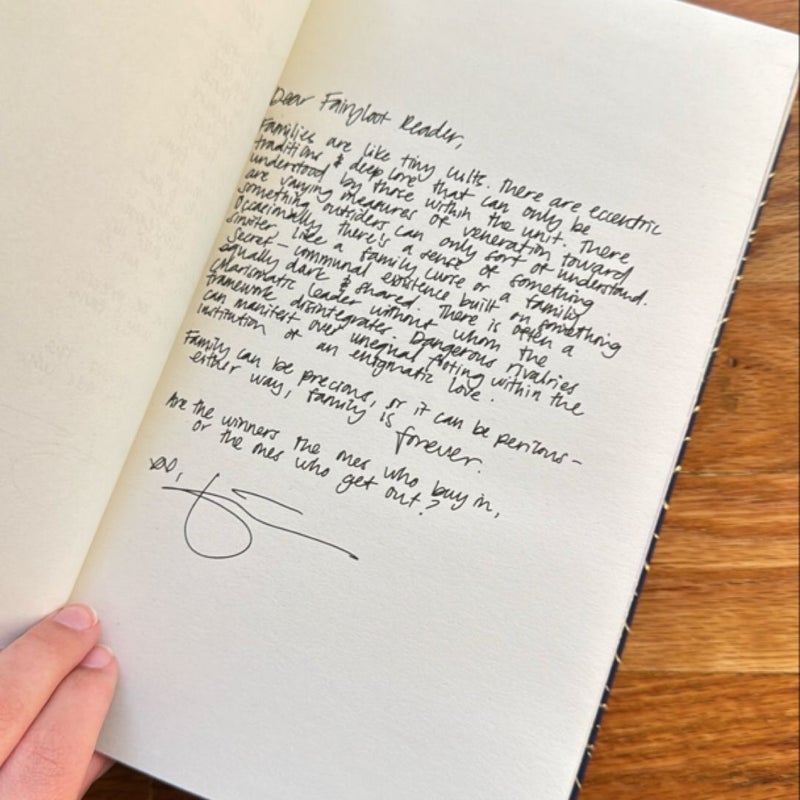 Dear Fairyloot Reader,
Families are like tiny cults. There are eccentric
traditions & deep lore that can only be
understood by those within the unit. There
are varying measures of veneration toward
something outsiders can only sort of understand.
Occasionally there's a sense of something
sinister, like a family curse or a family
secret - communal existence built on something
equally dark & shared. There is often a
charismatic leader without whom the
framework disintegrates. Dangerous rivalries
can manifest over unequal footing within the
institution of an enigmatic love.
Family can be precious, or it can be perilous -
either way, family is forever.
Are the winners the ones who buy in,
or the ones who get out?
xo,